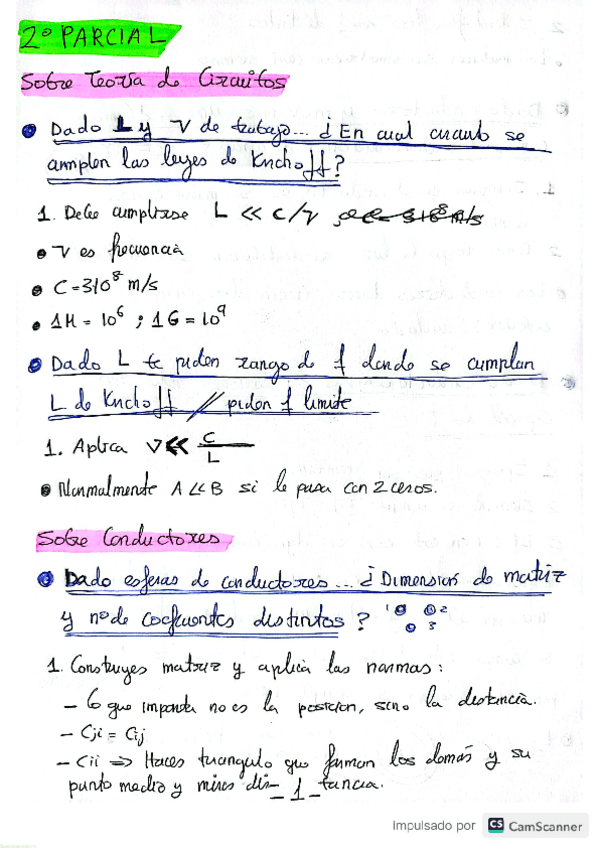 2º PARCIAL
Sobre Teoría de Circuitos
Dado L y ν de trabajo... ¿En cual cuanto se
cumplen las leyes de Kirchoff?
1. Debe cumplirse L << C/ν
• ν es frecuencia
• C=3·10⁸ m/s
• 1M = 10⁶ ; 1G = 10⁹
• Dado L te piden rango de f donde se cumplan
L de Kirchoff // piden f limite
1. Aplica ν << C/L
• Normalmente A << B si le pasa con 2 ceros.
Sobre Conductores
• Dado esferas de conductores... ¿Dimension de matriz
y nº de coeficientes distintos? 1 2
3
1. Construyes matriz y aplica las normas:
- Lo que importa no es la posicion, sino la distancia.
- Cji = Cij
- Cii ⇒ Haces triangulo que forman los demás y su
punto medio y miras dis-
_ 1 _
tancia.
Impulsado por CS CamScanner